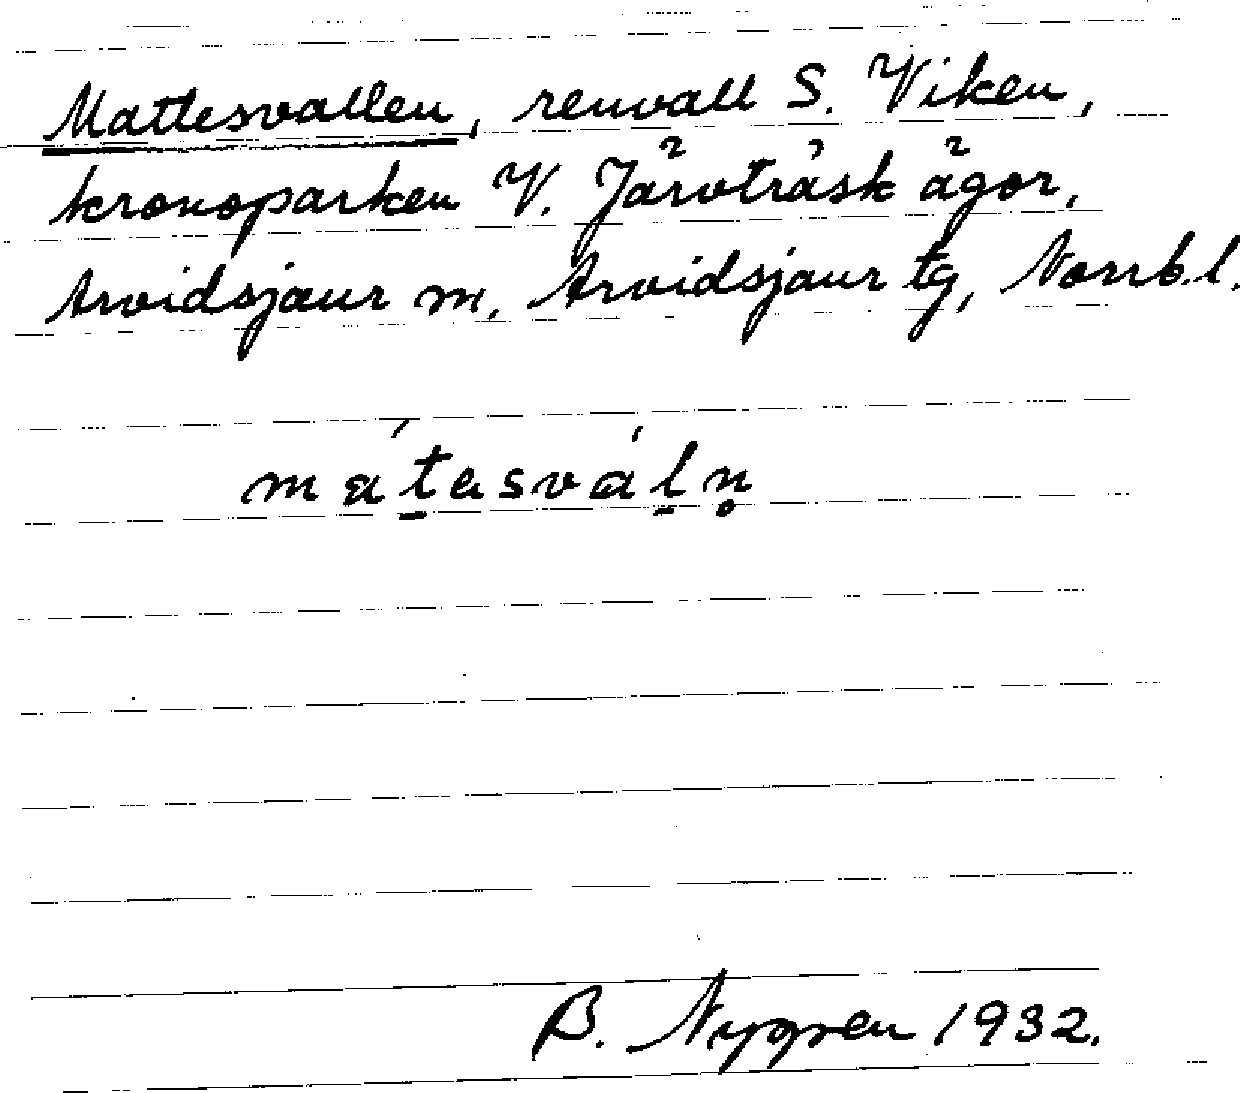 Mattesvallen, renvall S. Viken,
kronoparken V. Järvträsk ägor,
Arvidsjaur m, Arvidsjaur tg, Norrb.l.
matesvaln̥
B. Nygren 1932.